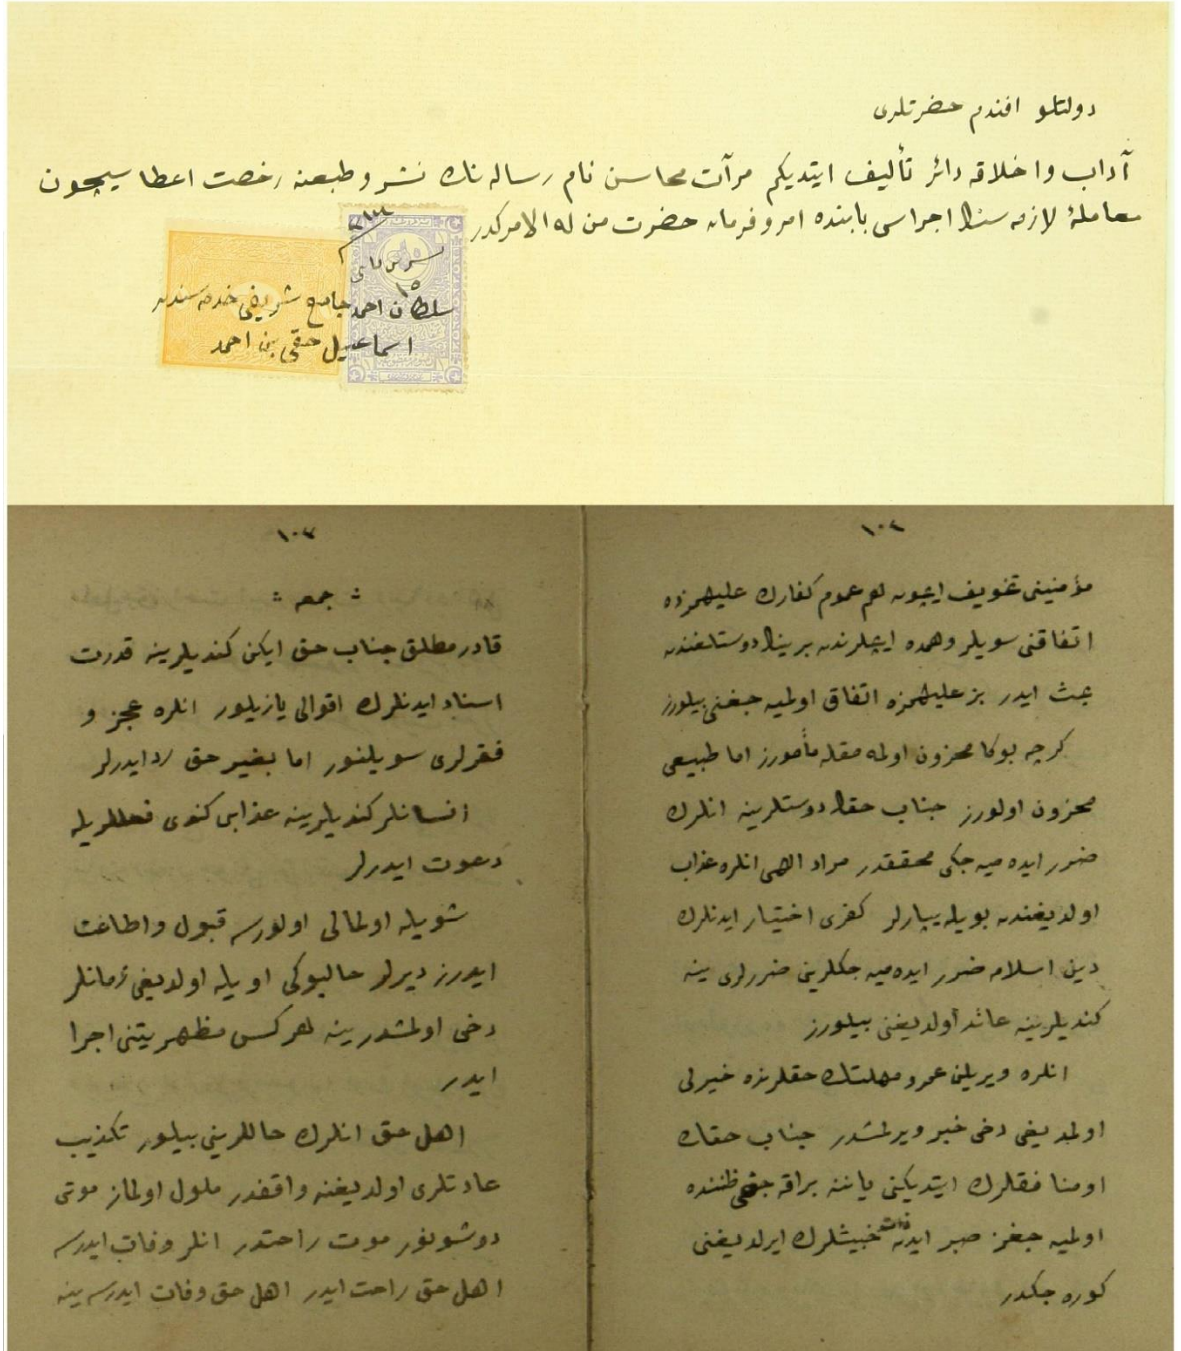 دولتلو افندم حضرتلری
آداب واخلاقه دائر تألیف ایتدیكم مرآت محاسن نام رساله نك نشر و طبعنه رخصت اعطا سیچون
معاملهٔ لازمه سنك اجراسی بابنده امر وفرمان حضرت من له الامر كدر
سلطان احمد جامع شریفی خدمه سندن
اسماعیل حقی بن احمد
١٠٢
مؤمنینی تخویف ایچون هم عموم كفارك علیهمزده
اتفاقنی سویلر وهمده ایچلرندن برینك دوستلغندن
بحث ایدر بز علیهمزه اتفاق اولمیه جغنی بیلورز
كرچه بوكا محزون اولمه مقله مأمورز اما طبیعی
محزون اولورز جناب حقك دوستلرینه انلرك
ضرر ایده میه جكی محققدر مراد الهی انلره عذاب
اولدیغندن بویله یپارلر كفری اختیار ایدنلرك
دین اسلامه ضرر ایده میه جكلرینی ضررلری ینه
كندیلرینه عائد اولدیغنی بیلورز
انلره ویریلن عمر و مهلتك حقلرنده خیرلی
اولمدیغی دخی خبر ویرلمشدر جناب حقك
اومنا فقلرك ایتدیكنی یاننه براقه جغی ظننده
اولمیه جغز صبر ایدن ذات خبیثلرك ایرلدیغنی
كوره جكدر
١٠٣
: جمعه :
قادر مطلق جناب حق ایكن كندیلرینه قدرت
اسناد ایدنلرك اقوالی یازیلور انلره عجز و
فقرلری سویلنور اما بغیر حق رد ایدرلر
انسانلر كندیلرینه عذابی كندی فعللریله
دعوت ایدرلر
شویله اولمالی اولورسه قبول واطاعت
ایدرز دیرلر حالبوكی اویله اولدیغی زمانلر
دخی اولمشدر ینه هركس مظهریتنی اجرا
ایدر
اهل حق انلرك حاللرینی بیلور تكذیب
عادتلری اولدیغنه واقفدر ملول اولماز موتی
دوشونور موت راحتدر انلر وفات ایدرسه
اهل حق راحت ایدر اهل حق وفات ایدرسه ینه